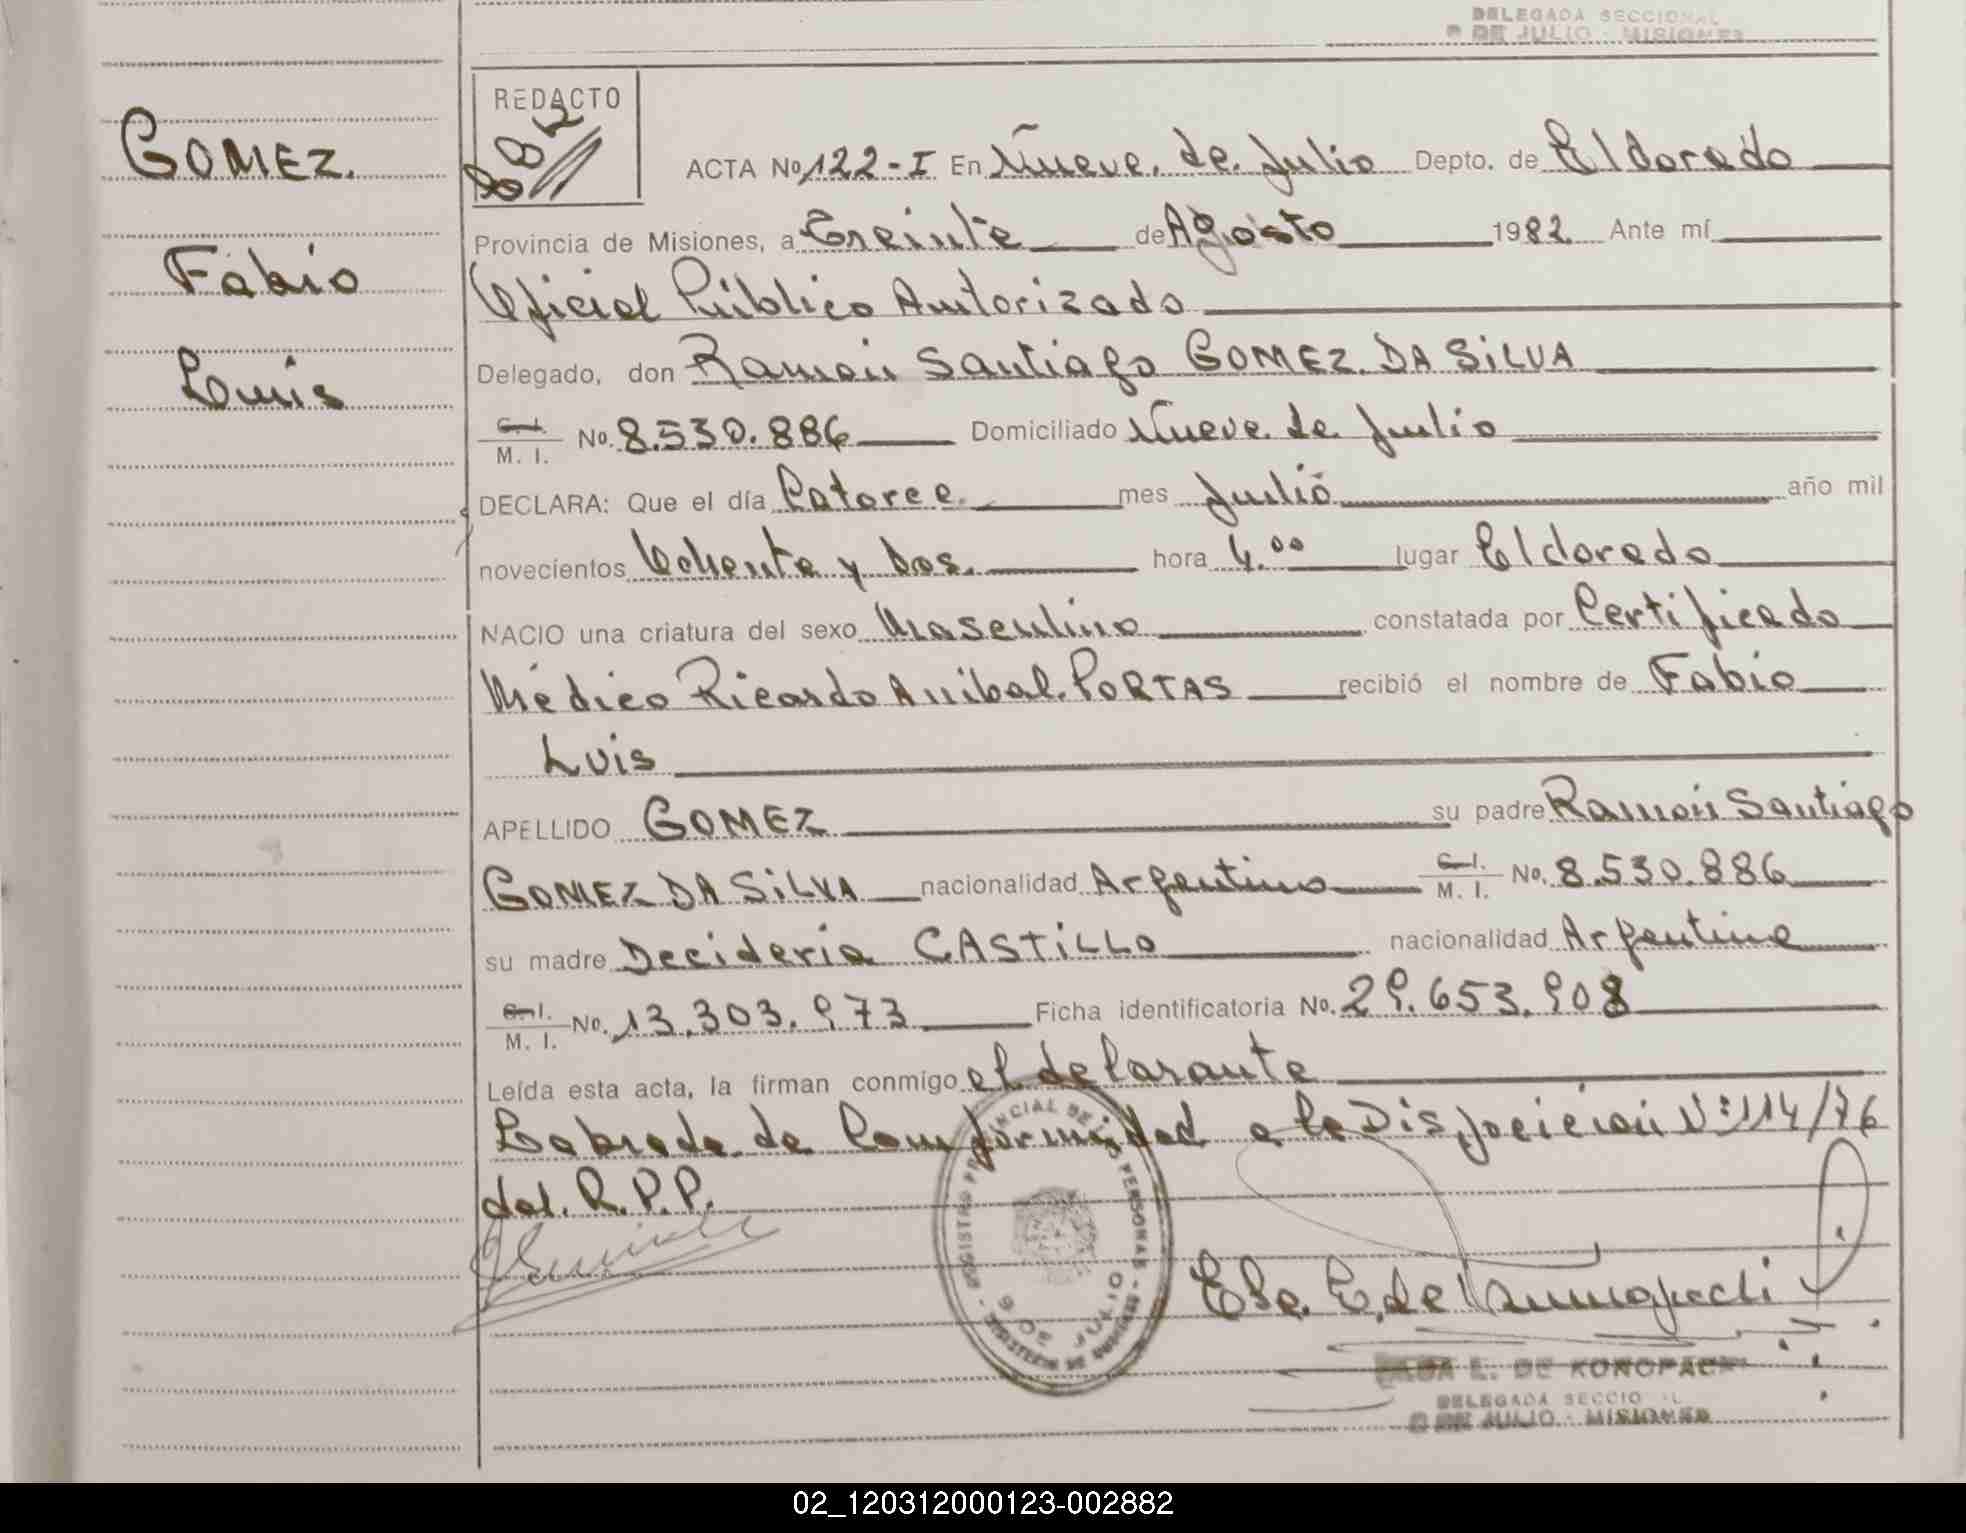 DELEGADA SECCIONAL
9 DE JULIO - MISIONES
GOMEZ.
Fabio
Luis
REDACTO
ACTA No 122-I En Nueve. de. Julio Depto. de Eldorado
Provincia de Misiones, a Treinta de Agosto 1982 Ante mí
Oficial Público Autorizado
Delegado, don Ramón Santiago GOMEZ. DA SILVA
C. I. / M. I. No. 8.530.886 Domiciliado Nueve. de Julio
DECLARA: Que el día Catorce. mes Julio año mil
novecientos Ochenta y Dos. hora 4.00 lugar Eldorado
NACIO una criatura del sexo Masculino constatada por Certificado
Médico Ricardo Anibal. PORTAS recibió el nombre de Fabio
Luis
APELLIDO GOMEZ su padre Ramón Santiago
GOMEZ DA SILVA nacionalidad Argentino C. I. / M. I. No. 8.530.886
su madre Decideria CASTILLO nacionalidad Argentina
C. I. / M. I. No. 13.303.973 Ficha identificatoria No. 29.653.908
Leída esta acta, la firman conmigo el delarante
Labrada de Conformidad a la Disposición Nº 114/76
del. R.P.P.
REGISTRO PROVINCIAL DE LAS PERSONAS - MINISTERIO DE GOBIERNO
9 DE JULIO
L. DE KONOPACKI
DELEGADA SECCIONAL
9 DE JULIO - MISIONES
02_120312000123-002882